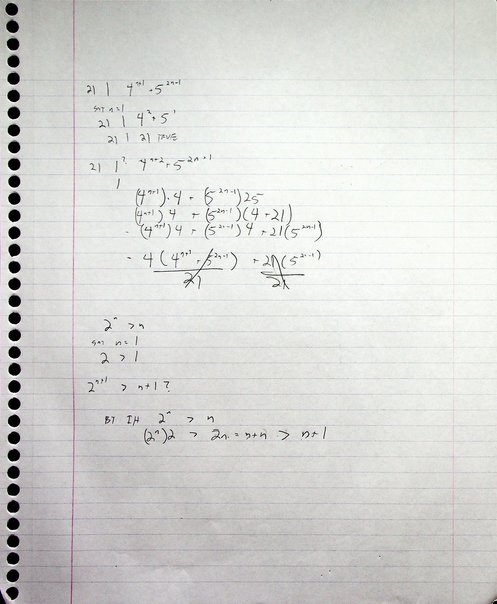 21 | 4^{n+1} + 5^{2n-1}
n=1
21 | 4^2 + 5^1
21 | 21 TRUE
21 |? 4^{n+2} + 5^{2n+1}
(4^{n+1})·4 + (5^{2n-1})25
(4^{n+1})4 + (5^{2n-1})(4+21)
= (4^{n+1})4 + (5^{2n-1})4 + 21(5^{2n-1})
= 4(4^{n+1} + 5^{2n-1}) + 21(5^{2n-1})
21 21
2^n > n
n=1
2 > 1
2^{n+1} > n+1?
BY IH 2^n > n
(2^n)2 > 2n = n+n > n+1